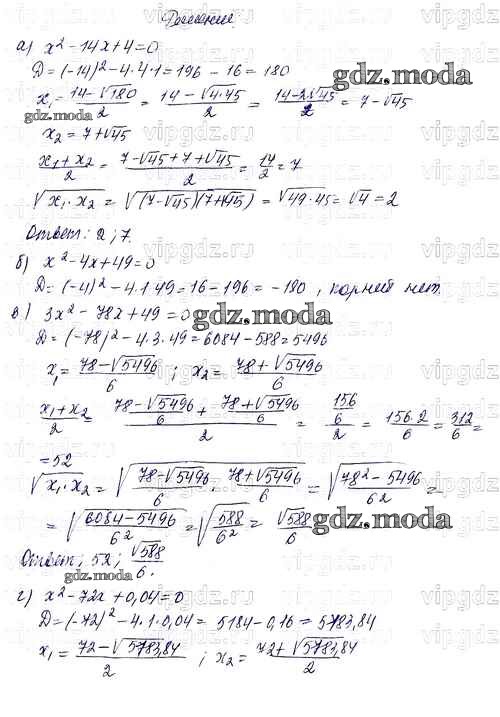 Решение.
а) x² - 14x + 4 = 0
D = (-14)² - 4·4·1 = 196 - 16 = 180
x₁ = (14 - √180)/2 = (14 - √4·45)/2 = (14 - 2√45)/2 = 7 - √45
x₂ = 7 + √45
(x₁ + x₂)/2 = (7 - √45 + 7 + √45)/2 = 14/2 = 7
√x₁·x₂ = √(7 - √45)(7 + √45) = √49·45 = √4 = 2
Ответ: 2; 7.
б) x² - 4x + 49 = 0
D = (-4)² - 4·1·49 = 16 - 196 = -180, корней нет.
в) 3x² - 78x + 49 = 0
D = (-78)² - 4·3·49 = 6084 - 588 = 5496
x₁ = (78 - √5496)/6 ; x₂ = (78 + √5496)/6
(x₁ + x₂)/2 = ((78 - √5496)/6 + (78 + √5496)/6)/2 = (156/6)/2 = 156·2/6 = 312/6 =
= 52
√x₁·x₂ = √((78 - √5496)/6 · (78 + √5496)/6) = √((78² - 5496)/6²) =
= √((6084 - 5496)/6²) = √(588/6²) = √588/6
Ответ: 52; √588/6.
г) x² - 72x + 0,04 = 0
D = (-72)² - 4·1·0,04 = 5184 - 0,16 = 5783,84
x₁ = (72 - √5783,84)/2 ; x₂ = (72 + √5783,84)/2
gdz.moda
gdz.moda
gdz.moda
gdz.moda
gdz.moda
vipgdz.ru